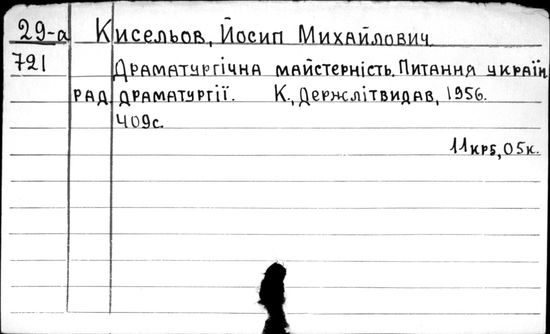 29-а Кисельов, Йосип Михайлович.
721 Драматургічна майстерність. Питання україн.
рад. драматургії. К., Держлітвидав, 1956.
409с.
11крб, 05к.